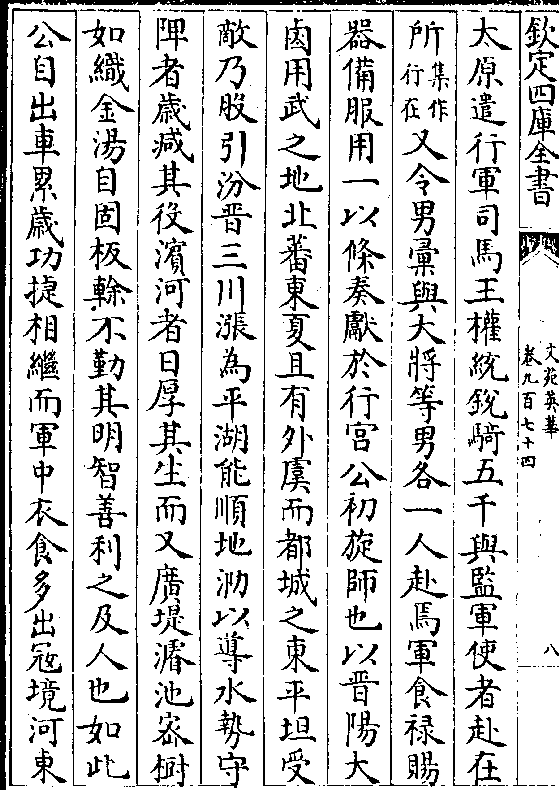 欽定四庫全書
文苑英華
卷九百七十四
八
太原遣行軍司馬王權統銳騎五千與監軍使者赴在
所集作行在又令男彙與大將等男各一人赴焉軍食祿賜
器備服用一以條奏獻於行宫公初旋師也以晋陽大
鹵用武之地北蕃東夏且有外虞而都城之東平坦受
敵乃股引汾晋三川漲為平湖能順地泐以導水勢守
陴者歳減其役濱河者日厚其生而又廣堤潴池宻樹
如織金湯自固板榦不勤其明智善利之及人也如此
公自出車累歳功捷相繼而軍中衣食多出冦境河東